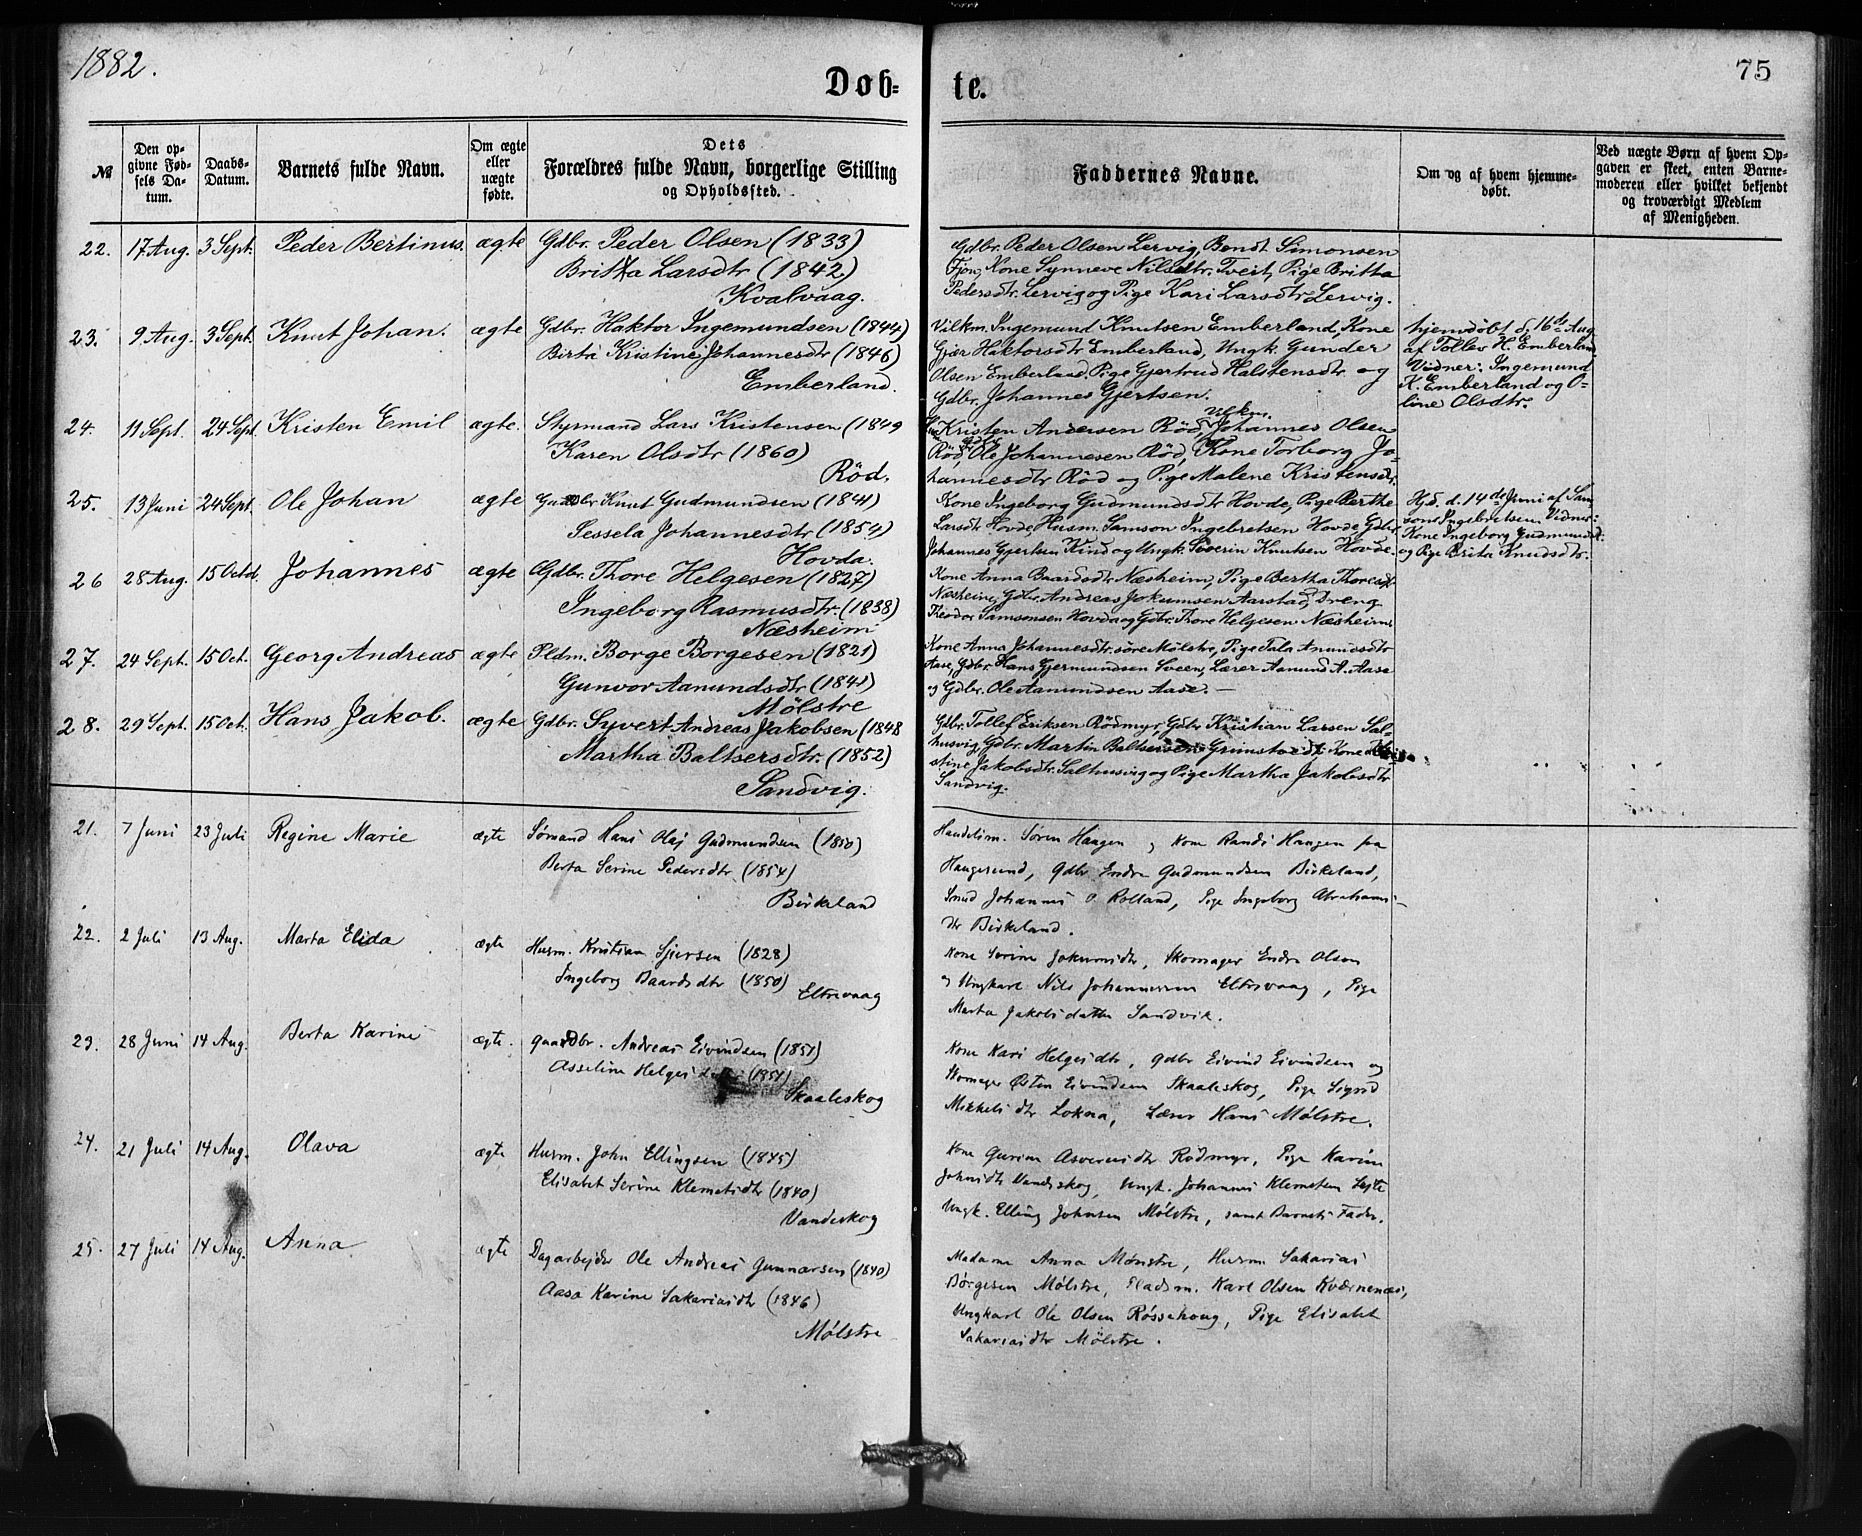 1882.
75
Døb-
te.
№
Den opgivne Fødsels Datum.
Daabs-Datum.
Barnets fulde Navn.
Om ægte eller uægte fødte.
Dets Forældres fulde Navn, borgerlige Stilling og Opholdssted.
Faddernes Navne.
Om og af hvem hjemmedøbt.
Ved uægte Børn af hvem Opgaven er skeet, enten Barnemoderen eller hvilket bekjendt og troværdigt Medlem af Menigheden.
22. 17 Aug. 3 Sept. Peder Bertinus ægte Gdbr. Peder Olsen (1833)
Britta Larsdtr (1842)
Kvalvaag.
Gdbr. Peder Olsen Lervig, Bendt Simonsen
Fjon, Kone Synneve Nilsdtr. Tveit, Pige Britha
Pedersdtr. Lervig og Pige Kari Larsdtr Lervig.
23. 9 Aug. 3 Sept. Knut Johan. ægte Gdbr. Haktor Ingemundsen (1844)
Birta Kristine Johannesdtr (1846)
Emberland.
Vilkm. Ingemund Knutsen Emberland, Kone
Gjær Haktorsdtr Emberland, Ungk. Gunder
Olsen Emberland. Pige Gjertrud Halstensdtr og
Gdbr. Johannes Gjertsen.
hjemdøbt d. 16de Aug.
af Tollev H. Emberland
Vidner: Ingemund
K. Emberland og O-
line Olsdtr.
24. 11 Sept. 24 Sept. Kristen Emil ægte. Styrmand Lars Kristensen (1849
Karen Olsdtr (1860)
Röd.
Kristen Andersen Röd, Vilkm. Johannes Olsen
Röd, Gdbr. Ole Johannesen Röd, Kone Torborg Jo-
hannesdtr Röd og Pige Malene Kristensdtr.
25. 13 Juni 24 Sept. Ole Johan ægte Gdbr Knut Gudmundsen (1841)
Sessela Johannesdtr (1854)
Hovda.
Kone Ingeborg Gudmundsdtr Hovde, Pige Berthe
Larsdtr Hovde, Husm. Samson Ingebretsen Hovde, Gdbr.
Johannes Gjertsen Kind og Ungk. Severin Knutsen Hovde.
Hjd. d. 14de Juni af Sam-
son Ingebretsen. Vidner:
Kone Ingeborg Gudmundsd.
og Pige Brita Knudsdtr.
26 28 Aug. 15 Octb. Johannes ægte Gdbr. Thore Helgesen (1827)
Ingeborg Rasmusdtr. (1838)
Næsheim
Kone Anna Baardsdtr Næsheim, Pige Bertha Thoresdt
Næsheim, Gdbr. Andreas Jokumsen Aarstad, Dreng
Theodor Samsonsen Hovda og Gdbr. Thore Helgesen Næsheim.
27. 24 Sept. 15 Oct. Georg Andreas ægte Pldm. Borge Borgesen (1821)
Gunvor Aamundsdtr (1841)
Mølstre
Kone Anna Johannesdtr. søre Mølstre, Pige Tala Amundsdtr
Aase, Gdbr. Hans Gjermundsen Sveen, Lærer Aamund A. Aase
og Gdbr. Ole Aamundsen Aase. —
28. 29 Sept. 15 Oct. Hans Jakob. ægte Gdbr. Syvert Andreas Jakobsen (1848
Martha Baltsersdtr. (1852)
Sandvig.
Gdbr. Tollef Eriksen Rödmyr, Gdbr Kristian Larsen Sal-
husvig, Gdbr. Martin Baltsersen Grimstvedt, Kone Kri-
stine Jakobsdtr. Salhusvig og Pige Martha Jakobsdtr
Sandvig.
21. 7 Juni 23 Juli Regine Marie ægte Sømand Hans Olaj Gudmundsen (1850)
Berta Serine Pedersdtr (1854)
Birkeland
Handelsm. Søren Haagen og Kone Randi Haagen fra
Haugesund, Gdbr Endre Gudmundsen Birkeland,
Smed Johannes O Rolland, Pige Ingeborg Abrahams-
dtr Birkeland.
22. 2 Juli 13 Aug. Marta Elida ægte Husm. Kristian Sjursen (1828)
Ingeborg Baardsdtr (1850)
Eltrevaag
Kone Serine Jokumsdtr, Skomager Endre Olsen
og Ungkarl Nils Johannessen Eltrevaag, Pige
Marta Jakobsdatter Sandvik.
23. 28 Juni 14 Aug. Berta Karine ægte. Gaardbr. Andreas Eivindsen (1851)
Asseline Helgesdtr (1851)
Skaaleskog
Kone Kari Helgesdtr, Gdbr Eivind Eivindsen og
Skomager Østen Eivindsen Skaaleskog, Pige Sigrid
Mikkelsdtr Lokna, Lærer Hans Mølstre.
24. 21 Juli 14 Aug. Olava ægte Husm. John Ellingsen (1845)
Elisabet Serine Klemetsdtr (1840)
Vandeskog
Kone Gurine Asversdtr Rödmyr, Pige Karine
Johnsdtr Vandeskog, Ungk. Johannes Klemetsen
Ungk. Elling Johnsen Mølstre, samt Barnets Fader.
25. 27 Juli 14 Aug. Anna ægte Dagarbejder Ole Andreas Gunnarsen (1840)
Aasa Karine Sakariasdtr (1846)
Mølstre
Madame Anna Mønstre, Husm Sakarias
Børgesen Mølstre, Pladsm. Karl Olsen Kværnenæs,
Ungkarl Ole Olsen Røssehoug, Pige Elisabet
Sakariasdtr Mølstre.